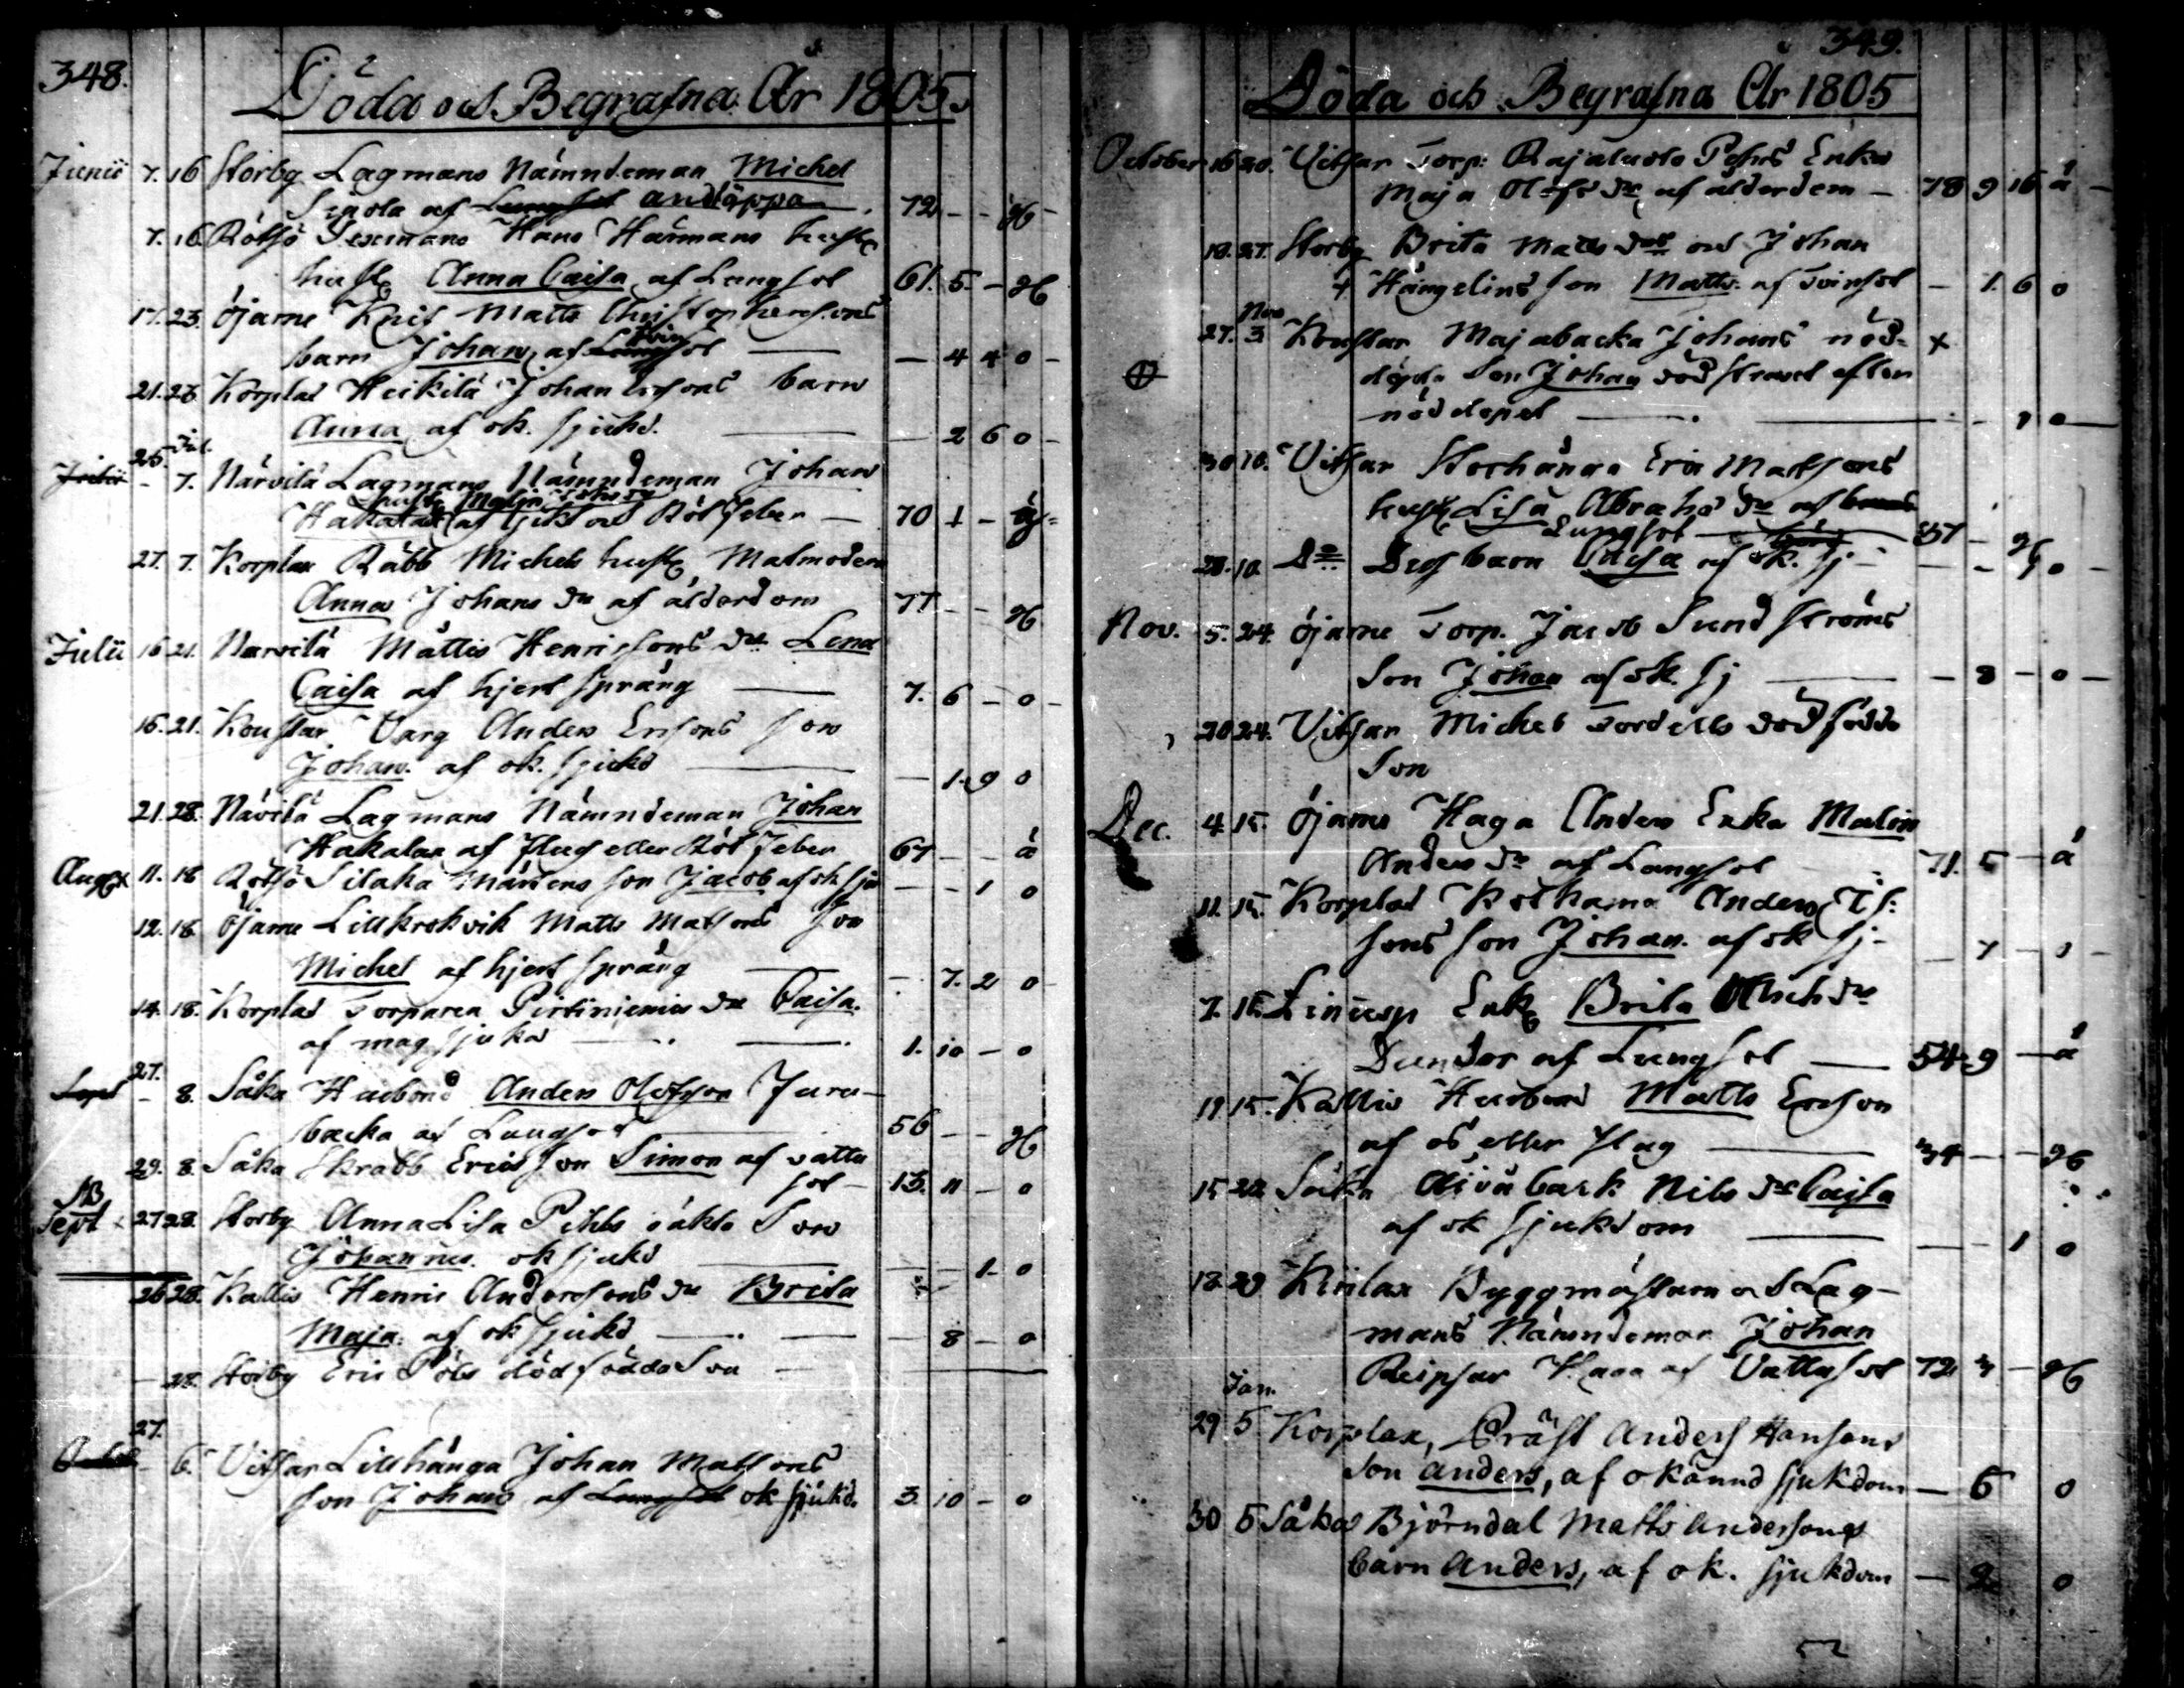 348.
Döda och Begrafna År 1805.
Junii 7. 16 Storby Lagmans Nämndeman Michel
af andtäppa 72 - - g
7. 16. Rötsö Hans Härmans hust
hust Anna Caisa af Lungsot 61. 5. - g
17. 23. Öjarne Knif Matts Christophersons
barn Johan af sot - 4 4 0 -
21. 23 Korplax Heikilä Johan Ersons barn
Anna af ok. sjukd. - 2 6 0 -
25. Jul. 7. Närvilä Lagmans Nämndeman Johan
Hakalax hust Malin af sjukt och Rötfeber - 70 1 -
27. 7. Korplax Räbb Michels hust Matmodern
Anna Johans dr af ålderdom 77 - - g
Julii 16 21. Narvilä Mattis Henrissons dr Lena
Caisa af hjert språng 7. 6 - 0 -
16. 21. Koustar Varg Anders Ersons son
Johan. af ok. sjukd - 1. 9 0
21. 28. Närvilä Lagmans Nämndeman Johan
Hakalax af Flug eller Rötfeber 67 - - å
Aug 11. 18 Rötsö Silaka Mårtens son Jacob af ok sju - - 1 0
12. 18. Öjarne Lillkrokvik Matts Matsons Son
Michel af hjert språng - 7. 2 0
14. 18. Korplax Torparen Pirtiniemis dr Caisa.
af mag sjukd 1. 10 - 0
27. 8. Såka Husbond Anders Olofsson Jura-
backa af Lungsot 56 - - g
29. 8. Såka Skrabb Erics son Simon af vattu
sot - 13. 11 - 0
NB
Sept 27 28. Storby Anna Lisa Pihls oäkta Son
Johannes. ok sjukd - - 1 - 0
26 28. Kallis Henric Anderssons dr Brita
Maja. af ok sjukd - 8 - 0
- 28. Storby Eric Pôls dödfödda Son
27. 6. Vitsar Lillhänga Johan Matsons
son Johan af ok sjukd. 3. 10 - 0
349.
Döda och Begrafna År 1805
October 16 20. Vitsar Torp: Rajaluoto Pehrs Enka
Maja Olofs dr af ålderdom - 78 9 16 å -
19. 27. Storby Brita Matts dr och Johan
Hängelins son Matts. af Tvinsot - 1. 6 0
27. Nov 3 Koustar Majabacka Johans nöd-
döpta Son Johan död strax efter
nöddopet - 1 0
30 10. Vitsar Storhänga Eric Matsons
hust Lisa Abrahs dr af
Lungsot 37 - g
28. 10. Do Dess barn Caisa af ok. sj - - - 1 0 -
Nov. 5. 24. Öjarne Torp. Jacob Sundströms
Son Johan af ok. sj - 3 - 0 -
20 24. Vitsar Michel Tordells dödfödda
Son
Dec. 4 15. Öjarne Haga Anders Enka Malin
Anders dr af Lungsot 71. 5 - å
11. 15. Korplax Rothama Anders
sons son Johan. af ok sj - - 7 - 0 -
7. 15. Linusp Enk Brita dr
Dunder af Lungsot 54. 9 - å
11 15. Kallis Husbond Matts Erson
af os eller flug 34 - - g
15 22 Såka back Nils dr Caisa
af ok sjukdom - - 1 0
18. 29 Kiilax Byggmästaren och Lag-
mans Nämndeman Johan
Reipsar af Vattusot 72 3 - g
Jan.
29 5 Korplax, Präst Anders Hansons
Son Anders, af okänd sjukdom - 6 0
30 5 Såka Björndal Matts Andersons
barn Anders, af ok. sjukdom - 2 0